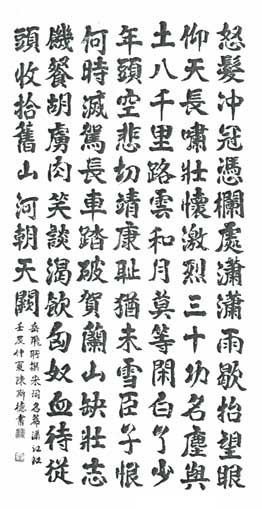 怒髮冲冠憑欄處瀟瀟雨歇抬望眼
仰天長嘯壯懷激烈三十功名塵與
土八千里路雲和月莫等閑白了少
年頭空悲切靖康耻猶未雪臣子恨
何時滅駕長車踏破賀蘭山缺壯志
饑餐胡虜肉笑談渴飲匈奴血待從
頭收拾舊山河朝天闕
岳飛所撰宋詞名篇滿江紅
壬辰仲夏陳斯德書